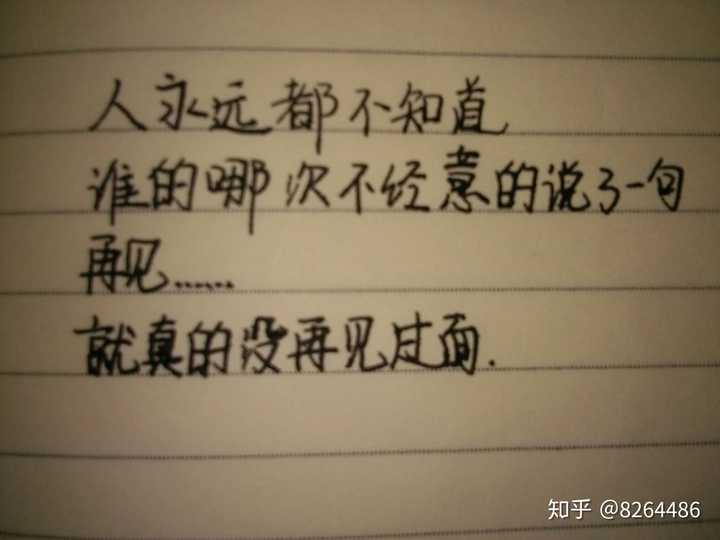 人永远都不知道
谁的哪次不经意的说了一句
再见......
就真的没再见过面.
知乎 @8264486